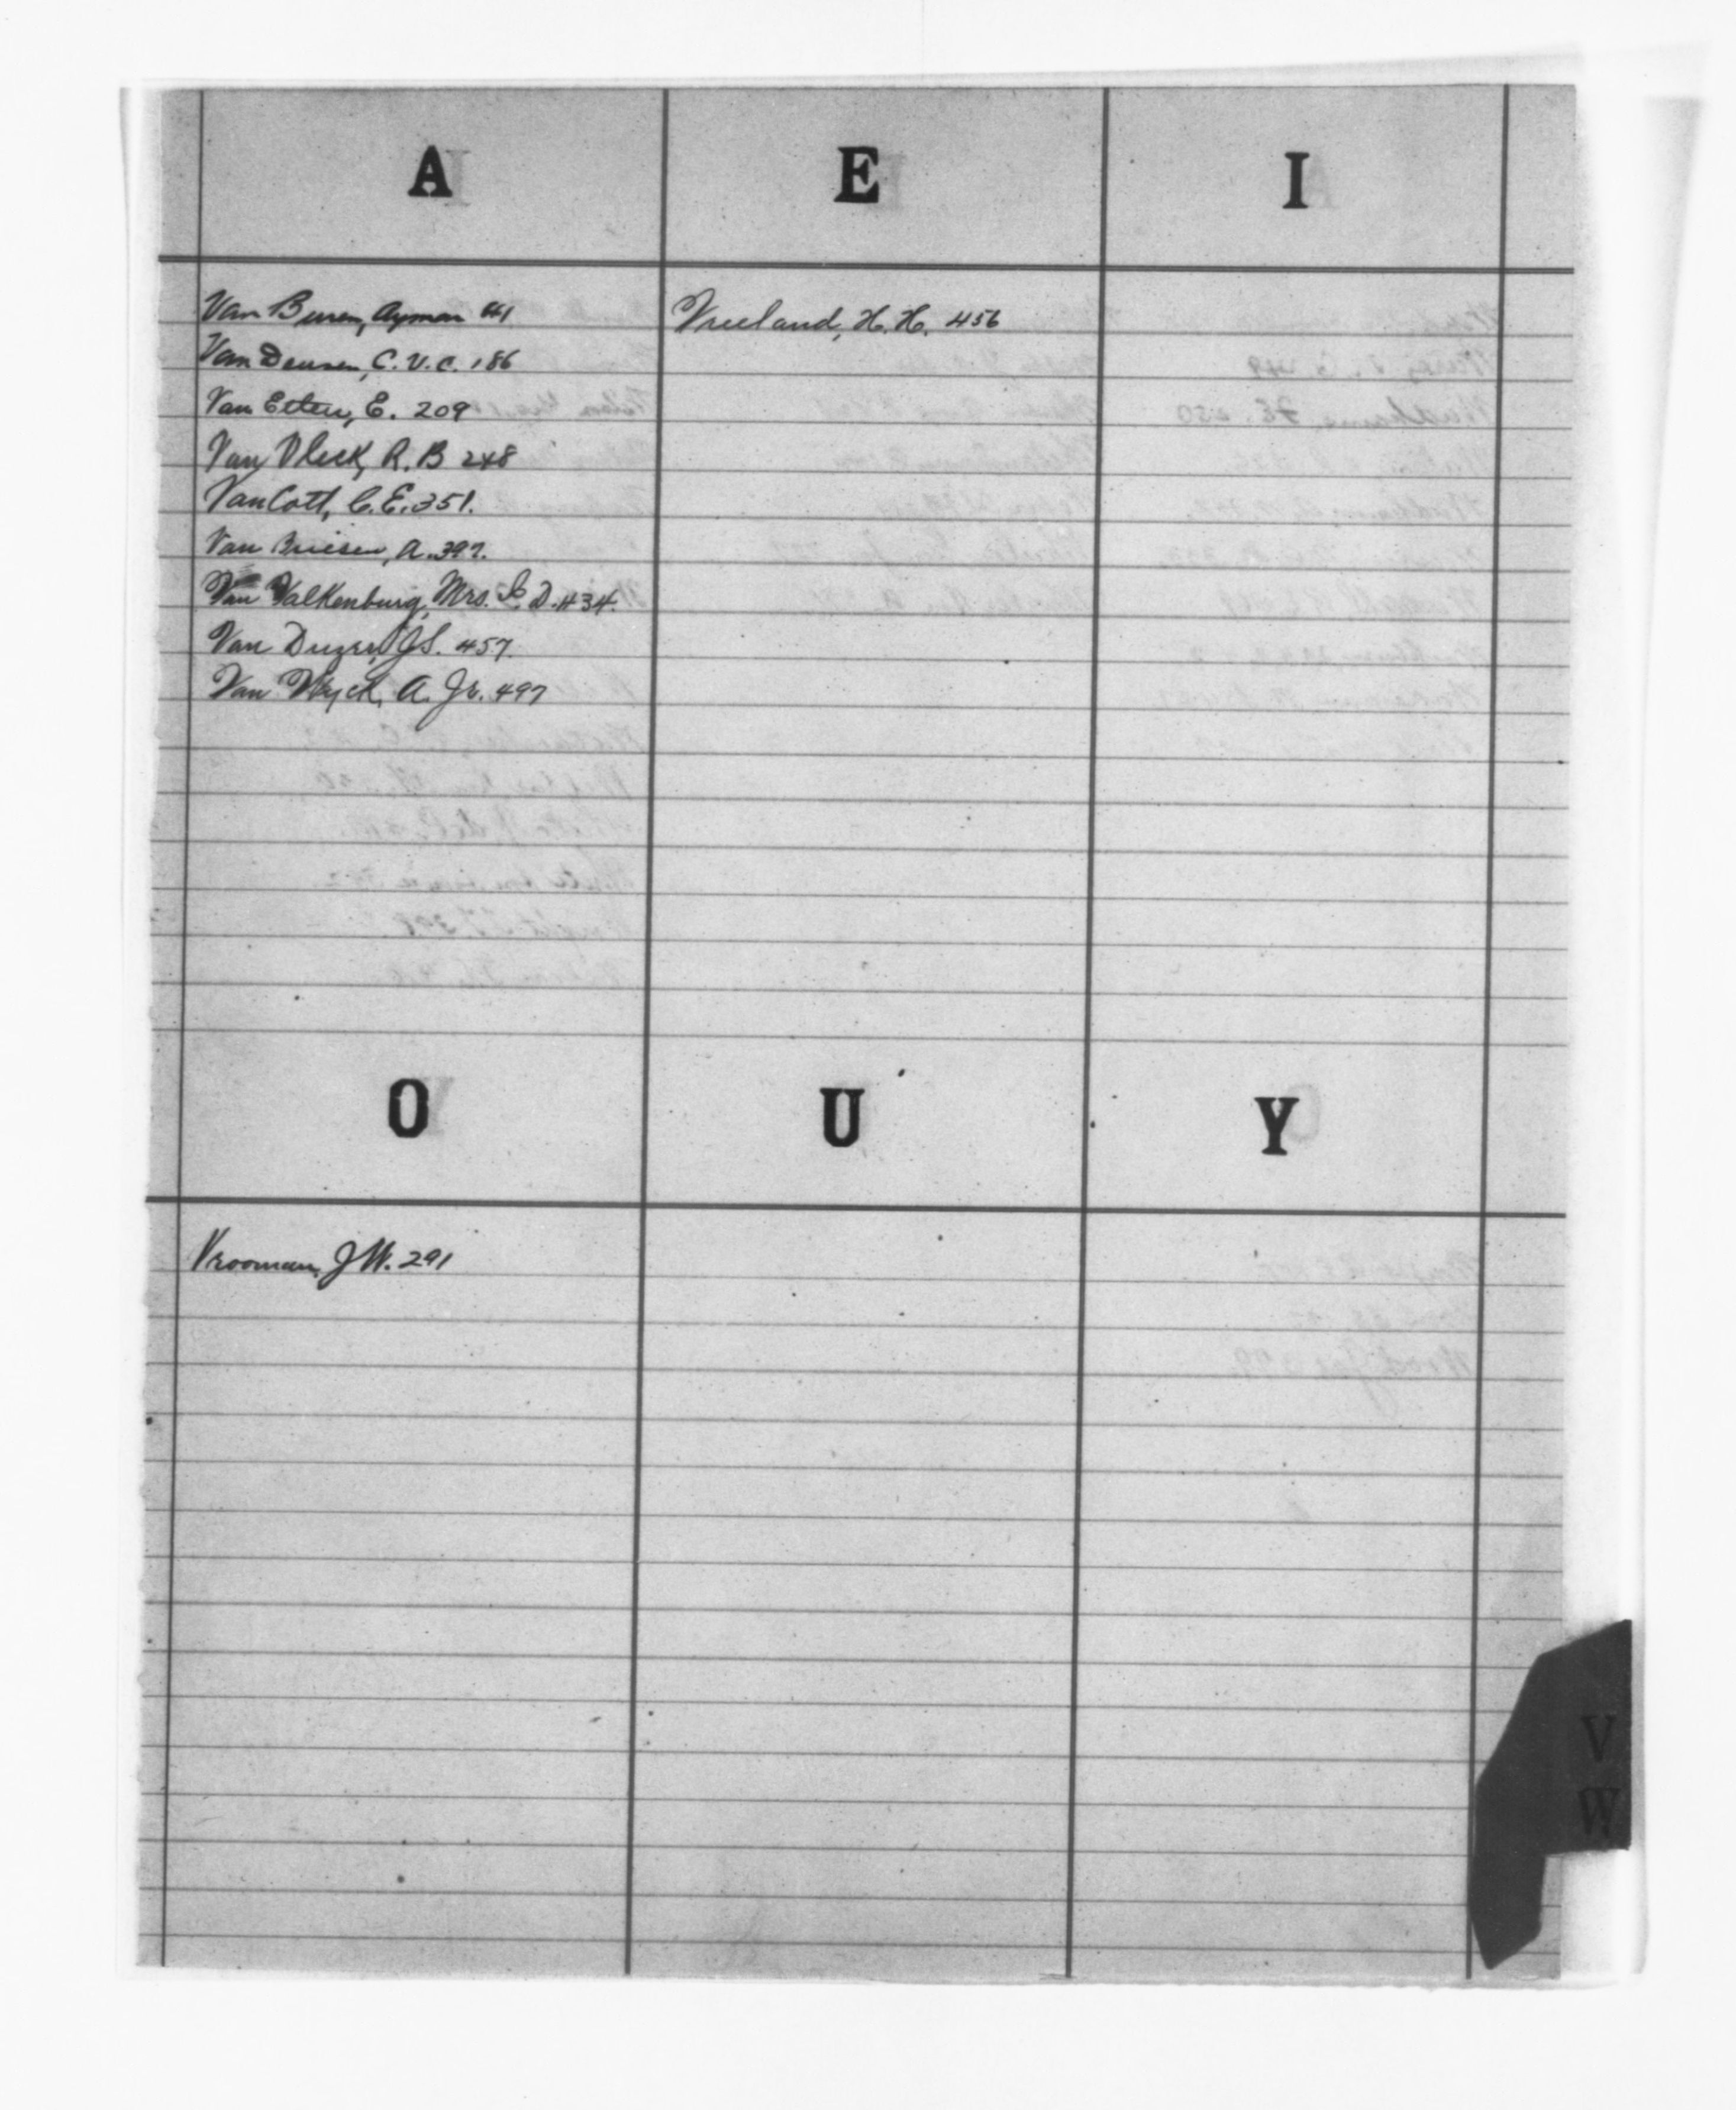 A
E
I
Van Buren, Ayman 41
Van Deusen, C. V. C. 186
Van Etten, E. 209
Van Vleck, R. B 248
Van Cott, C. E. 351.
Van Briesen, A. 397.
Van Valkenburg, Mrs. D. 434.
Van Duzer, J S. 457.
Van Wyck, A. Jr. 497
Vreeland, H. H. 456
O
U
Y
Vrooman, J W. 291
V
W